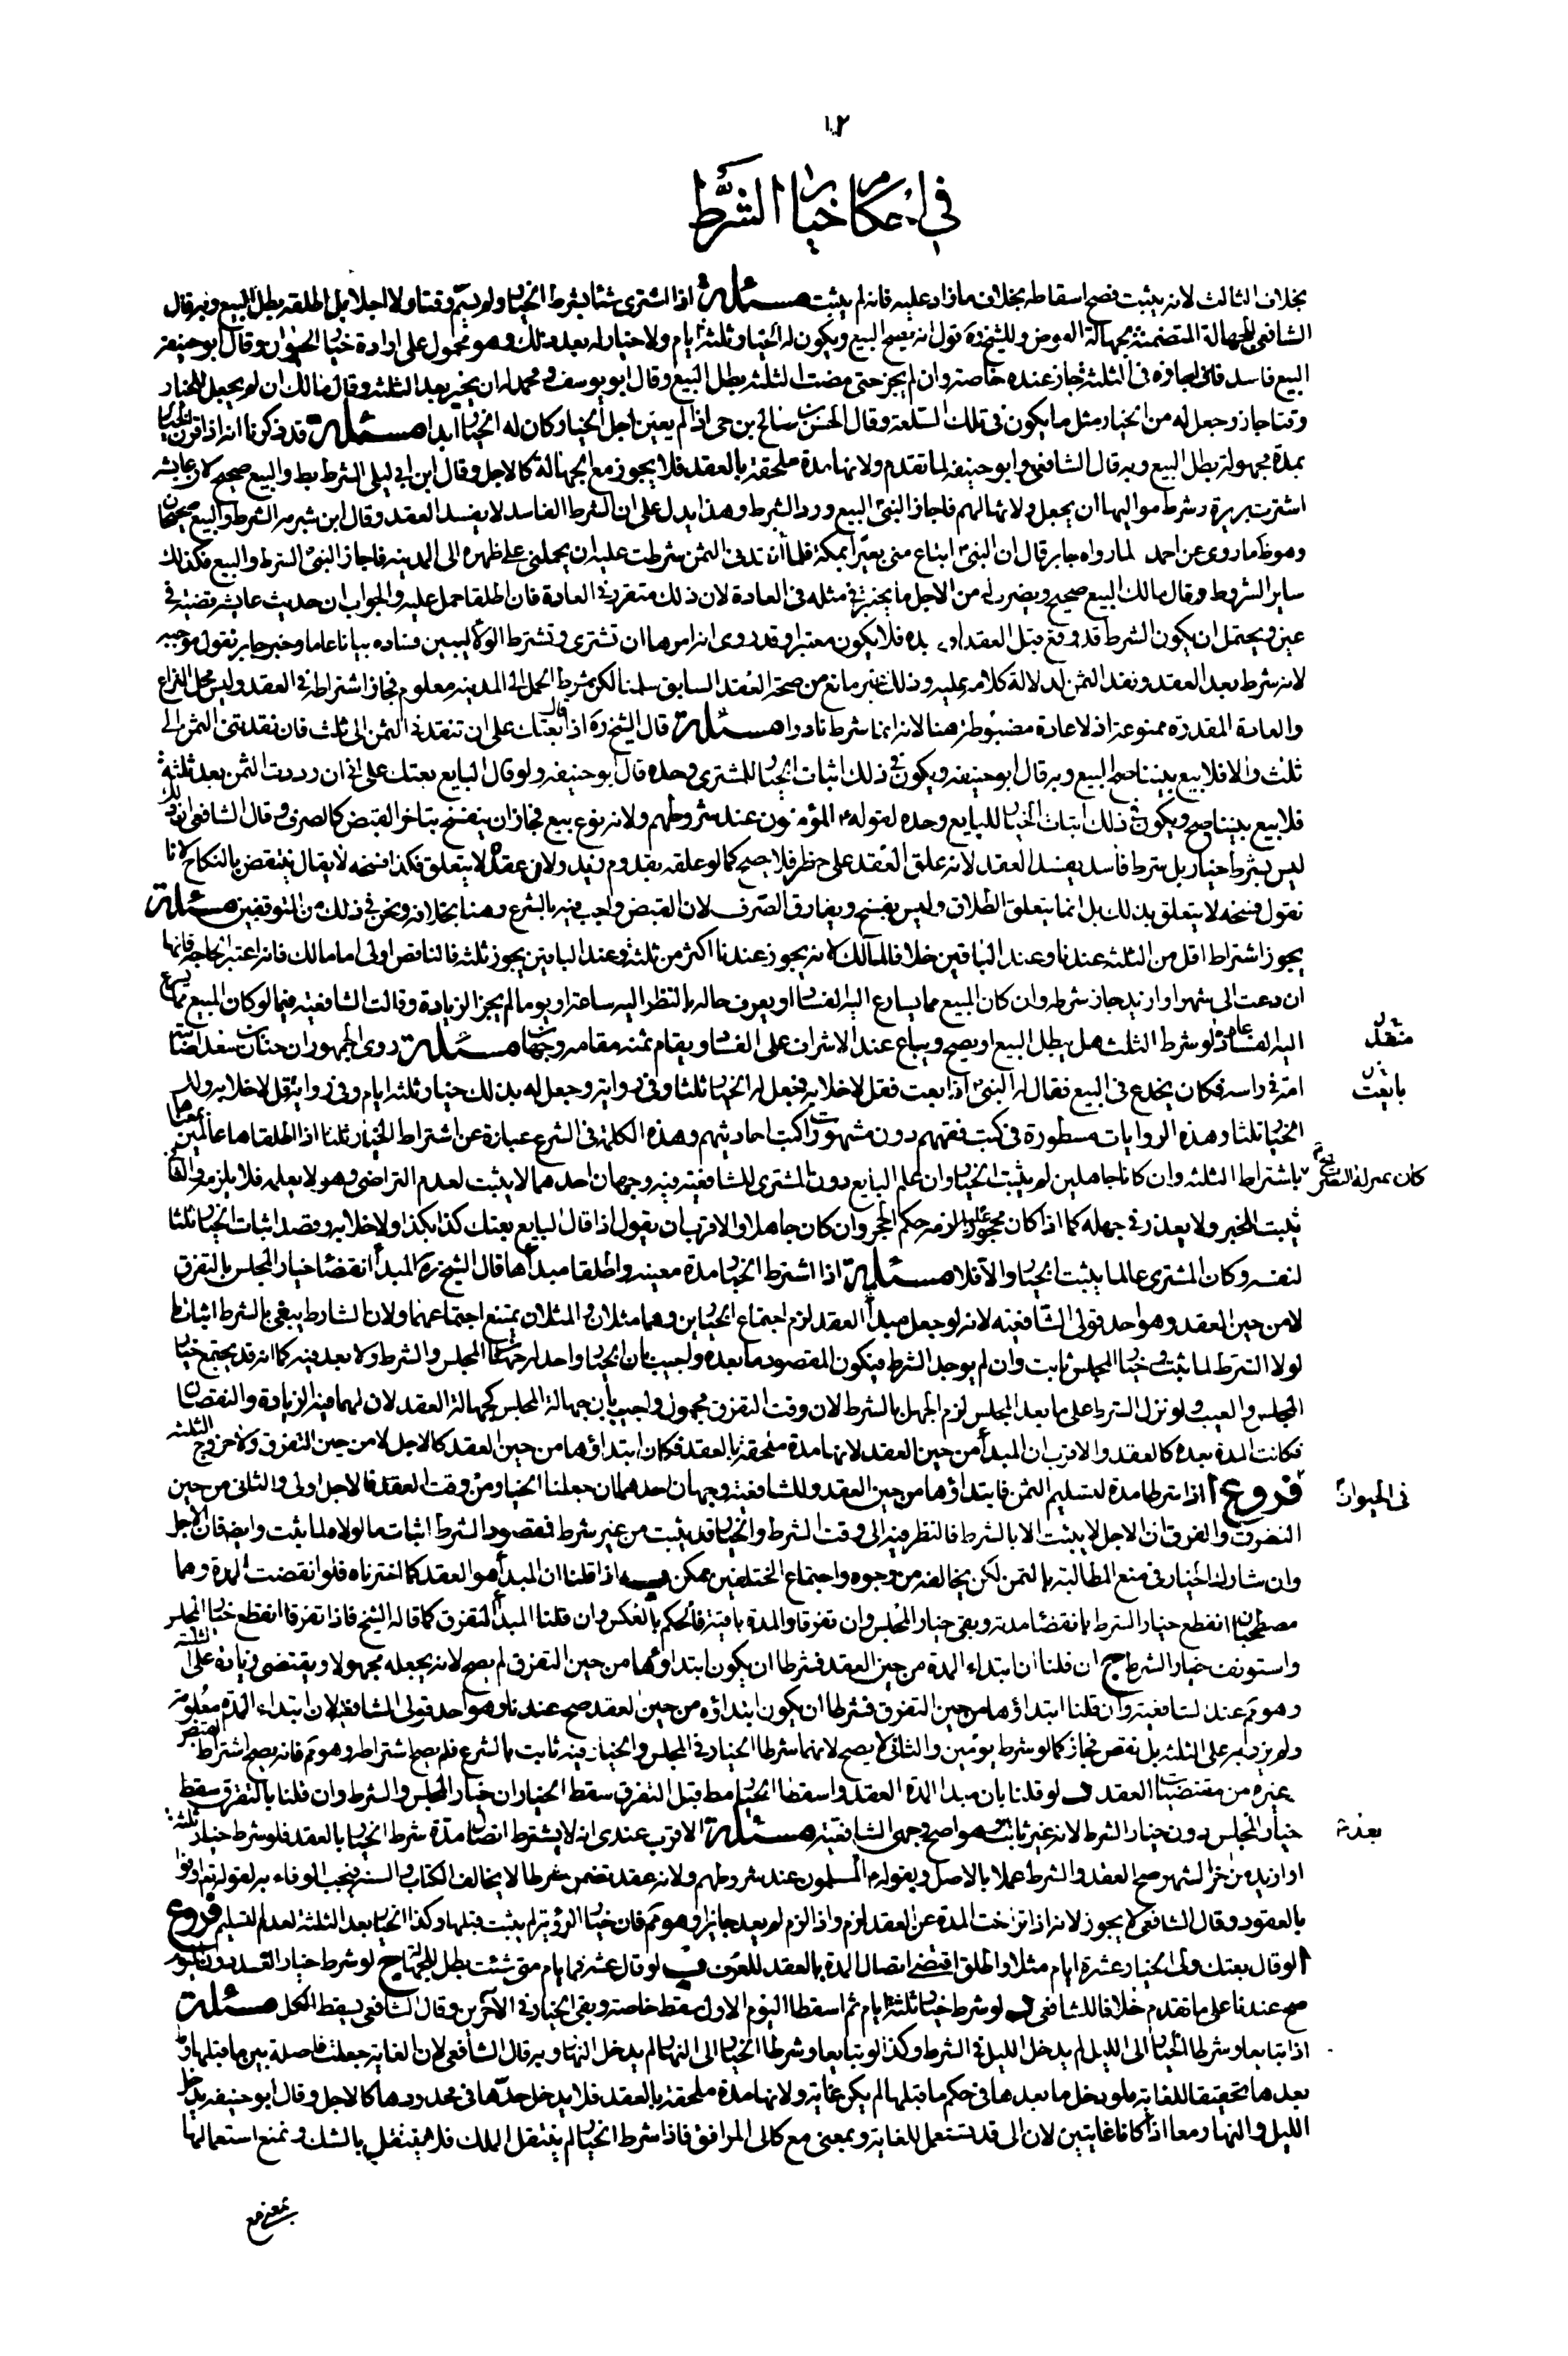 ١٠٢
في احكام خيار الشرط
بخلاف الثالث لانه يثبت فصح اسقاطه بخلاف ما زاد عليه فانه لم يثبت مسئلة اذا اشترى شئا بشرط الخيار ولم يسم وقتا ولا اجلا بل اطلقه بطل البيع وبه قال
الشافعي للجهالة المتضمنة بجهالة العوض وللشيخ ره قول انه يصح البيع ويكون له الخيار ثلثة ايام ولا خيار له بعد ذلك وهو محمول على ارادة خيار الحيوان وقال ابو حنيفه
البيع فاسد فان اجازه في الثلثة جاز عنده خاصة وان لم يجز حتى مضت الثلثه بطل البيع وقال ابو يوسف ومحمد له ان يخير بعد الثلثة وقال مالك ان لم يجعل للخيار
وقتا جاز وجعل له من الخيار مثل ما يكون في تلك السلعة وقال الحسن بن صالح بن حى اذا لم يعين اجل الخيار كان له الخيار ابدا مسئلة قد ذكرنا انه اذا قرن الخيار
بمدة مجهولة بطل البيع وبه قال الشافعي وابو حنيفه لما تقدم ولانها مدة ملحقة بالعقد فلا يجوز مع الجهالة كالاجل وقال ابن ابي ليلى الشرط بط والبيع صحيح لان عايشه
اشترت بريرة وشرط مواليها ان يجعل ولائها لهم فاجاز النبي البيع ورد الشرط وهذا يدل على ان الشرط الفاسد لا يفسد العقد وقال ابن شبرمه الشرط والبيع صحيحان
وهو ظ ما روى عن احمد لما رواه جابر قال ان النبي ابتاع منى بعيرا بمكة فلما نقدني الثمن شرطت عليه ان يحملني على ظهره الى المدينه فاجاز النبي الشرط والبيع فكذلك
ساير الشروط وقال مالك البيع صحيح ويضرب له من الاجل ما يختبر في مثله في العادة لان ذلك متقرر في العادة فان اطلقا حمل عليه والجواب ان حديث عايشه قضية في
عين ويحتمل ان يكون الشرط قد وقع قبل العقد او بعده فلا يكون معتبرا وقد روى انه امرها ان تشترى وتشترط الولاء ليبين فساده بيانا عاما وخبر جابر نقول موجبه
لانه شرط بعد العقد ونقد الثمن لدلالة كلامه عليه وذلك غير مانع من صحة العقد السابق سلمنا لكن شرط الحمل الى المدينه معلوم فجاز اشتراطه في العقد وليس محل النزاع
والعادة المقدرة ممنوعة اذ لا عادة مضبوطة هنا لانه انما شرط نادرا مسئلة قال الشيخ ره اذا قال بعتك على ان تنقدني الثمن الى ثلث فان نقدتنى الثمن الى
ثلث والا فلا بيع بيننا صح البيع وبه قال ابو حنيفه ويكون في ذلك اثبات الخيار للمشتري وحده قال ابو حنيفه ولو قال البايع بعتك على انى ان رددت الثمن بعد ثلثة
فلا بيع بيننا صح ويكون في ذلك اثبات الخيار للبايع وحده لقوله المؤمنون عند شروطهم ولانه نوع بيع فجاز ان ينفسخ بتاخر القبض كالصرف وقال الشافعي ان ذلك
ليس بشرط خيار بل شرط فاسد يفسد العقد لانه علق العقد على خطر فلا يصح كما لو علقه بقدوم زيد ولان عقده لا يتعلق فكذا فسخه لا يقال ينتقض بالنكاح لانا
نقول فسخه لا يتعلق بذلك بل انما يتعلق الطلاق وليس بفسخ ويفارق الصرف لان القبض واجب فيه بالشرع وهنا بخلافه ونحن في ذلك من المتوقفين مسئلة
يجوز اشتراط اقل من الثلثه عندنا وعند الباقين خلافا لمالك لانه يجوز عندنا اكثر من ثلثة وعند الباقين يجوز ثلثه فالناقص اولى اما مالك فانه اعتبر الحاجه فانها
ان دعت الى شهر او ازيد جاز شرطه وان كان المبيع مما يسارع اليه الفساد او يعرف حاله بالنظر اليه ساعة او يوما لم يجز الزيادة وقالت الشافعية فيما لو كان المبيع مما يسرع
اليه الفساد عادة لو شرط الثلث هل يبطل البيع او يصح ويباع عند الاشراف على الفساد ويقام ثمنه مقامه وجهان مسئلة روى الجمهور ان حنان بن سعد اصابته
امة في راسه فكان يخدع في البيع فقال له النبي اذا بعت فقل لا خلابه فجعل له الخيار ثلثا وفي رواية وجعل له بذلك خيار ثلثه ايام وفي رواية قل لا خلابه ولك
الخيار ثلثا وهذه الروايات مسطورة في كتب فقههم دون مشهورات كتب احاديثهم وهذه الكلمة في الشرع عبارة عن اشتراط الخيار ثلثا اذا اطلقاها عالمين بمعناها
باشتراط الثلثه وان كانا جاهلين لم يثبت الخيار وان علم البايع دون المشترى للشافعية فيه وجهان احدهما لا يثبت لعدم التراضى وهو لا يعلمه فلا يلزمه والثاني
يثبت الخير ولا يعذر في جهله كما اذا كان محجورا عليه لزمه حكم الحجر وان كان جاهلا والاقرب ان يقول اذا قال البايع بعتك كذا بكذا ولا خلابه وقصد اثبات الخيار ثلثا
لنفسه وكان المشترى عالما يثبت الخيار والا فلا مسئلة اذا اشترط الخيار مدة معينه واطلقا مبدأها قال الشيخ ره المبدأ انقضاء خيار المجلس بالتفرق
لا من حين العقد وهو احد قولي الشافعيه لانه لو جعل مبدأ العقد لزم اجتماع الخيارين وهما مثلان والمثلان يمتنع اجتماعهما ولان الشارط يبغى بالشرط اثبات ما
لولا الشرط لما ثبت وخيار المجلس ثابت وان لم يوجد الشرط فيكون المقصود ما بعده واجيب بان الخيار واحد له جهتان المجلس والشرط ولا بعد فيه كما انه قد يجتمع خيار
المجلس والعيب ولو نزل الشرط على ما بعد المجلس لزم الجهل بالشرط لان وقت التفرق مجهول واجيب بأن جهالة المجلس كجهالة العقد لان لهما فيه الزيادة والنقصان
فكانت المدة بعده كالعقد والاقرب ان المبدأ من حين العقد لانها مدة ملحقة بالعقد فكان ابتداؤها من حين العقد كالاجل لا من حين التفرق ولا خروج الثلثه
فروع أ اذا شرطا مدة لتسليم الثمن فابتداؤها من حين العقد وللشافعية وجهان احدهما ان جعلنا الخيار من وقت العقد فالاجل اولى والثاني من حين
التفرق والفرق ان الاجل لا يثبت الا بالشرط فالنظر فيه الى وقت الشرط والخيار قد يثبت من غير شرط فمقصود الشرط اثبات ما لولاه لما يثبت وايضا فان الاجل
وان شارك الخيار في منع المطالبة بالثمن لكن يخالفه من وجوه واجتماع المختلفين ممكن ب اذا قلنا ان المبدأ هو العقد كما اخترناه فلو انقضت المدة وهما
مصطحبان انقطع خيار الشرط بانقضاء مدته وبقى خيار المجلس وان تفرقا والمدة باقية فالحكم بالعكس وان قلنا المبدأ التفرق كما قاله الشيخ فاذا تفرقا انقطع خيار المجلس
واستونف خيار الشرط ج ان قلنا ان ابتداء المدة من حين العقد فشرطا ان يكون ابتداؤها من حين التفرق لم يصح لانه يجعله مجهولا ويقتضى زيادة على الثلثه
وهو تم عند الشافعية وان قلنا ابتداؤها من حين التفرق فشرطا ان يكون ابتداؤه من حين العقد صح عندنا وهو احد قولي الشافعيه لان ابتداء المدة معلوم
ولم يزد به على الثلثه بل نقص فجاز كما لو شرط يومين والثاني لا يصح لانهما شرطا الخيار في المجلس والخيار فيه ثابت بالشرع فلم يصح اشتراطه وهو تم فانه يصح اشتراط القبض
وغيره من مقتضيات العقد د لو قلنا بان مبدأ المدة العقد واسقطا الخيار مط قبل التفرق سقط الخياران خيار المجلس والشرط وان قلنا بالتفرق سقط
خيار المجلس دون خيار الشرط لانه غير ثابت وهو اصح وجهي الشافعية مسئلة الاقرب عندي انه لا يشترط اتصال مدة شرط الخيار بالعقد فلو شرط خيار ثلثة
او ازيد من آخر الشهر صح العقد والشرط عملا بالاصل وبقوله المسلمون عند شروطهم ولانه عقد تضمن شرطا لا يخالف الكتاب والسنه فيجب الوفاء به لقوله تع اوفوا
بالعقود وقال الشافعي لا يجوز لانه اذا تراخت المدة عن العقد لزم واذا لزم لم يعد جايزا وهو تم فان خيار الرؤية لم يثبت قبلها وكذا الخيار بعد الثلثة لعدم التسليم فروع
أ لو قال بعتك ولى الخيار عشرة ايام مثلا واطلق اقتضى اتصال المدة بالعقد للعرف ب لو قال عشرة ايام متى شئت بطل للجهالة ج لو شرط خيار الغد دون اليوم
صح عندنا على ما تقدم خلافا للشافعي د لو شرط خيار ثلثة ايام ثم اسقطا اليوم الاول سقط خاصة وبقى الخيار في الآخرين وقال الشافعي يسقط الكل مسئلة
اذا تبايعا وشرطا الخيار الى الليل لم يدخل الليل في الشرط وكذا لو تبايعا وشرطا الخيار الى النهار لم يدخل النهار وبه قال الشافعي لان الغاية جعلت فاصلة بين ما قبلها وما
بعدها تحقيقا للغاية فلو دخل ما بعدها في حكم ما قبلها لم يكن غاية ولانها مدة ملحقة بالعقد فلا يدخل حدها في محدودها كالاجل وقال ابو حنيفه يدخل
الليل والنهار معا اذا كانا غايتين لان الى قد تستعمل للغاية وبمعنى مع كالى المرافق فاذا شرط الخيار لم ينتقل الملك فلا ينتقل بالشك ونمنع استعمالها
بمعنى مع
منقذ
بايعت
كان بمنزلة التصريح
في الحيوان
بعد